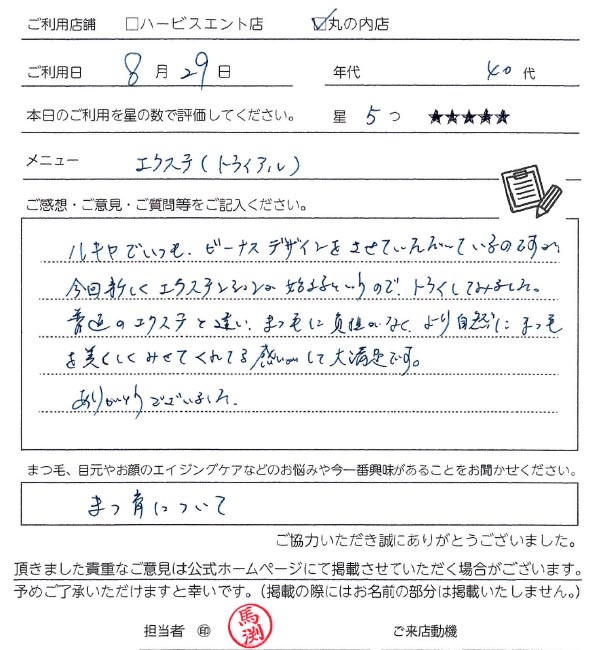 ご利用店舗 □ハービスエント店 ☑丸の内店
ご利用日 8月29日 年代 40代
本日のご利用を星の数で評価してください。 星 5つ ★★★★★
メニュー エクステ(トライアル)
ご感想・ご意見・ご質問等をご記入ください。
ルキヤでいつも、ビーナスデザインをさせていただいているのですが、
今回新しくエクステンションが始まるというので、トライしてみました。
普通のエクステと違い、まつ毛に負担がなく、より自然にまつ毛
を美しくみせてくれてる感じがして大満足です。
ありがとうございました。
まつ毛、目元やお顔のエイジングケアなどのお悩みや今一番興味があることをお聞かせください。
まつ育について
ご協力いただき誠にありがとうございました。
頂きました貴重なご意見は公式ホームページにて掲載させていただく場合がございます。
予めご了承いただけますと幸いです。(掲載の際にはお名前の部分は掲載いたしません。)
担当者 ㊞ 馬渕 ご来店動機